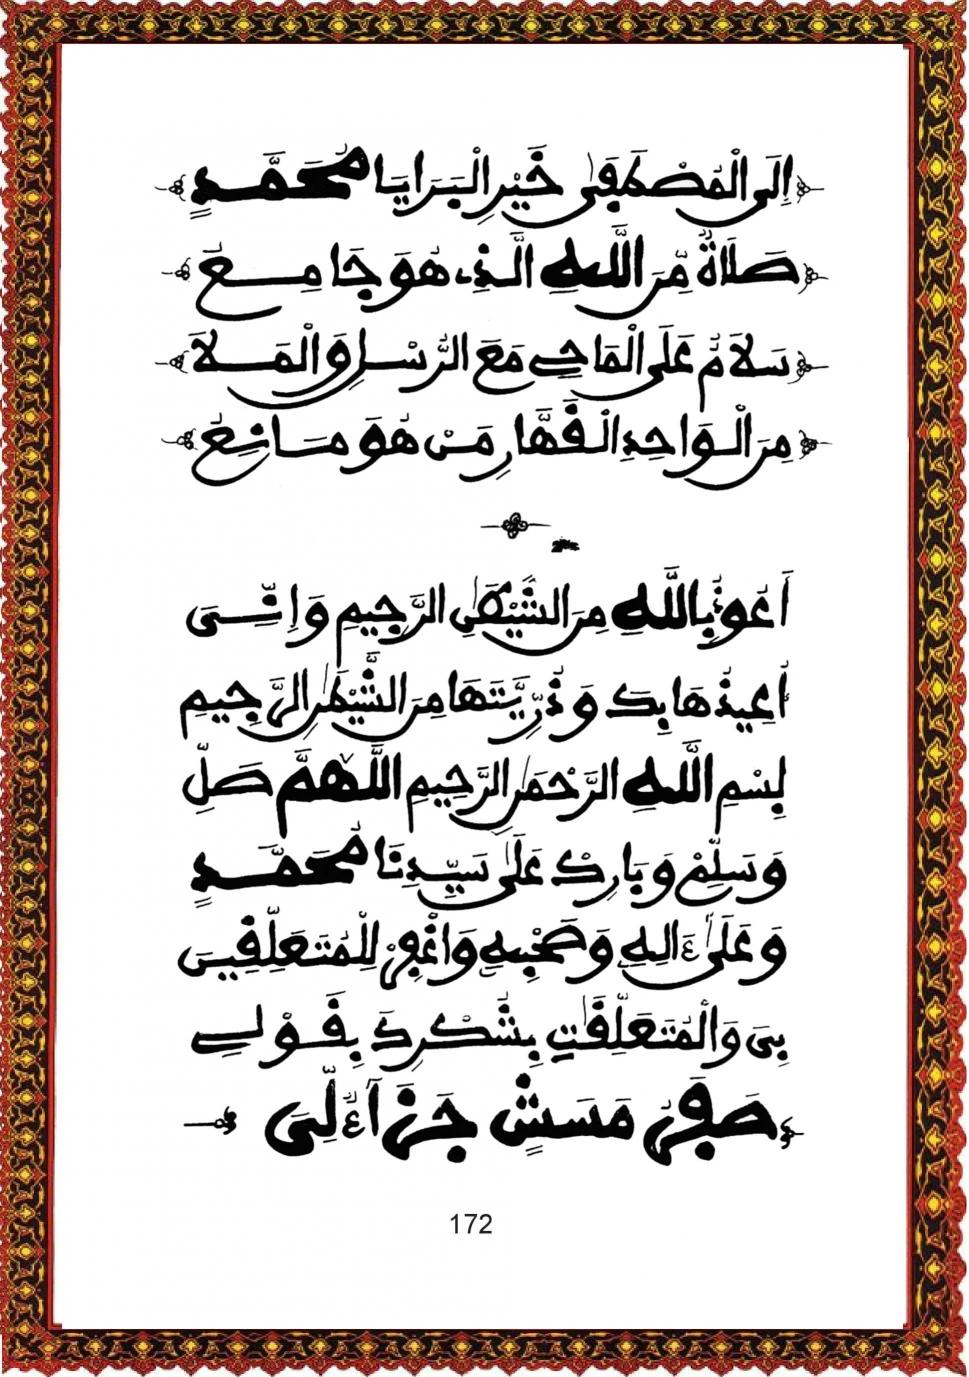 إِلَى الْمُصْطَفَى خَيْرِ الْبَرَايَا مُحَمَّدٍ
صَلَاةٌ مِّنَ اللَّهِ الَّذِي هُوَ جَامِعُ
سَلَامٌ عَلَى الْمَاحِي مَعَ الرُّسْلِ وَالْمَلَا
مِنَ الْوَاحِدِ الْقَهَّارِ مَنْ هُوَ مَانِعُ
أَعُوذُ بِاللَّهِ مِنَ الشَّيْطَٰنِ الرَّجِيمِ وَإِنِّي
أُعِيذُهَا بِكَ وَذُرِّيَّتَهَا مِنَ الشَّيْطَٰنِ الرَّجِيمِ
بِسْمِ اللَّهِ الرَّحْمَٰنِ الرَّحِيمِ اللَّهُمَّ صَلِّ
وَسَلِّمْ وَبَارِكْ عَلَى سَيِّدِنَا مُحَمَّدٍ
وَعَلَى ءَالِهِ وَصَحْبِهِ وَاغْفِرْ لِلْمُتَعَلِّقِينَ
بِيَ وَالْمُتَعَلِّقَاتِ بِشَكْرِكَ بِقَوْلِي
صَفَرُ مَسَشٍ جَزَآءٌ لِّي
172